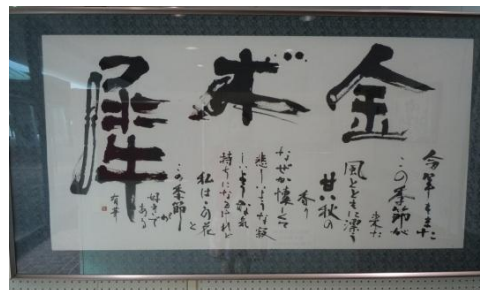 金木犀
今年もまた
この季節が
来た
風とともに漂う
甘い秋の
香り
なぜか懐しくて
悲しいような寂
しいような気
持ちになるけれど
私はこの花
と
この季節
が
好きで
ある